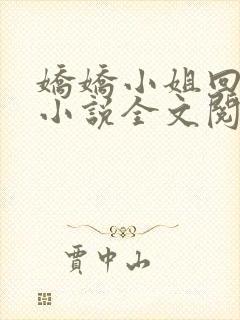 嬌嬌小姐回
小說全文閱
賈中山